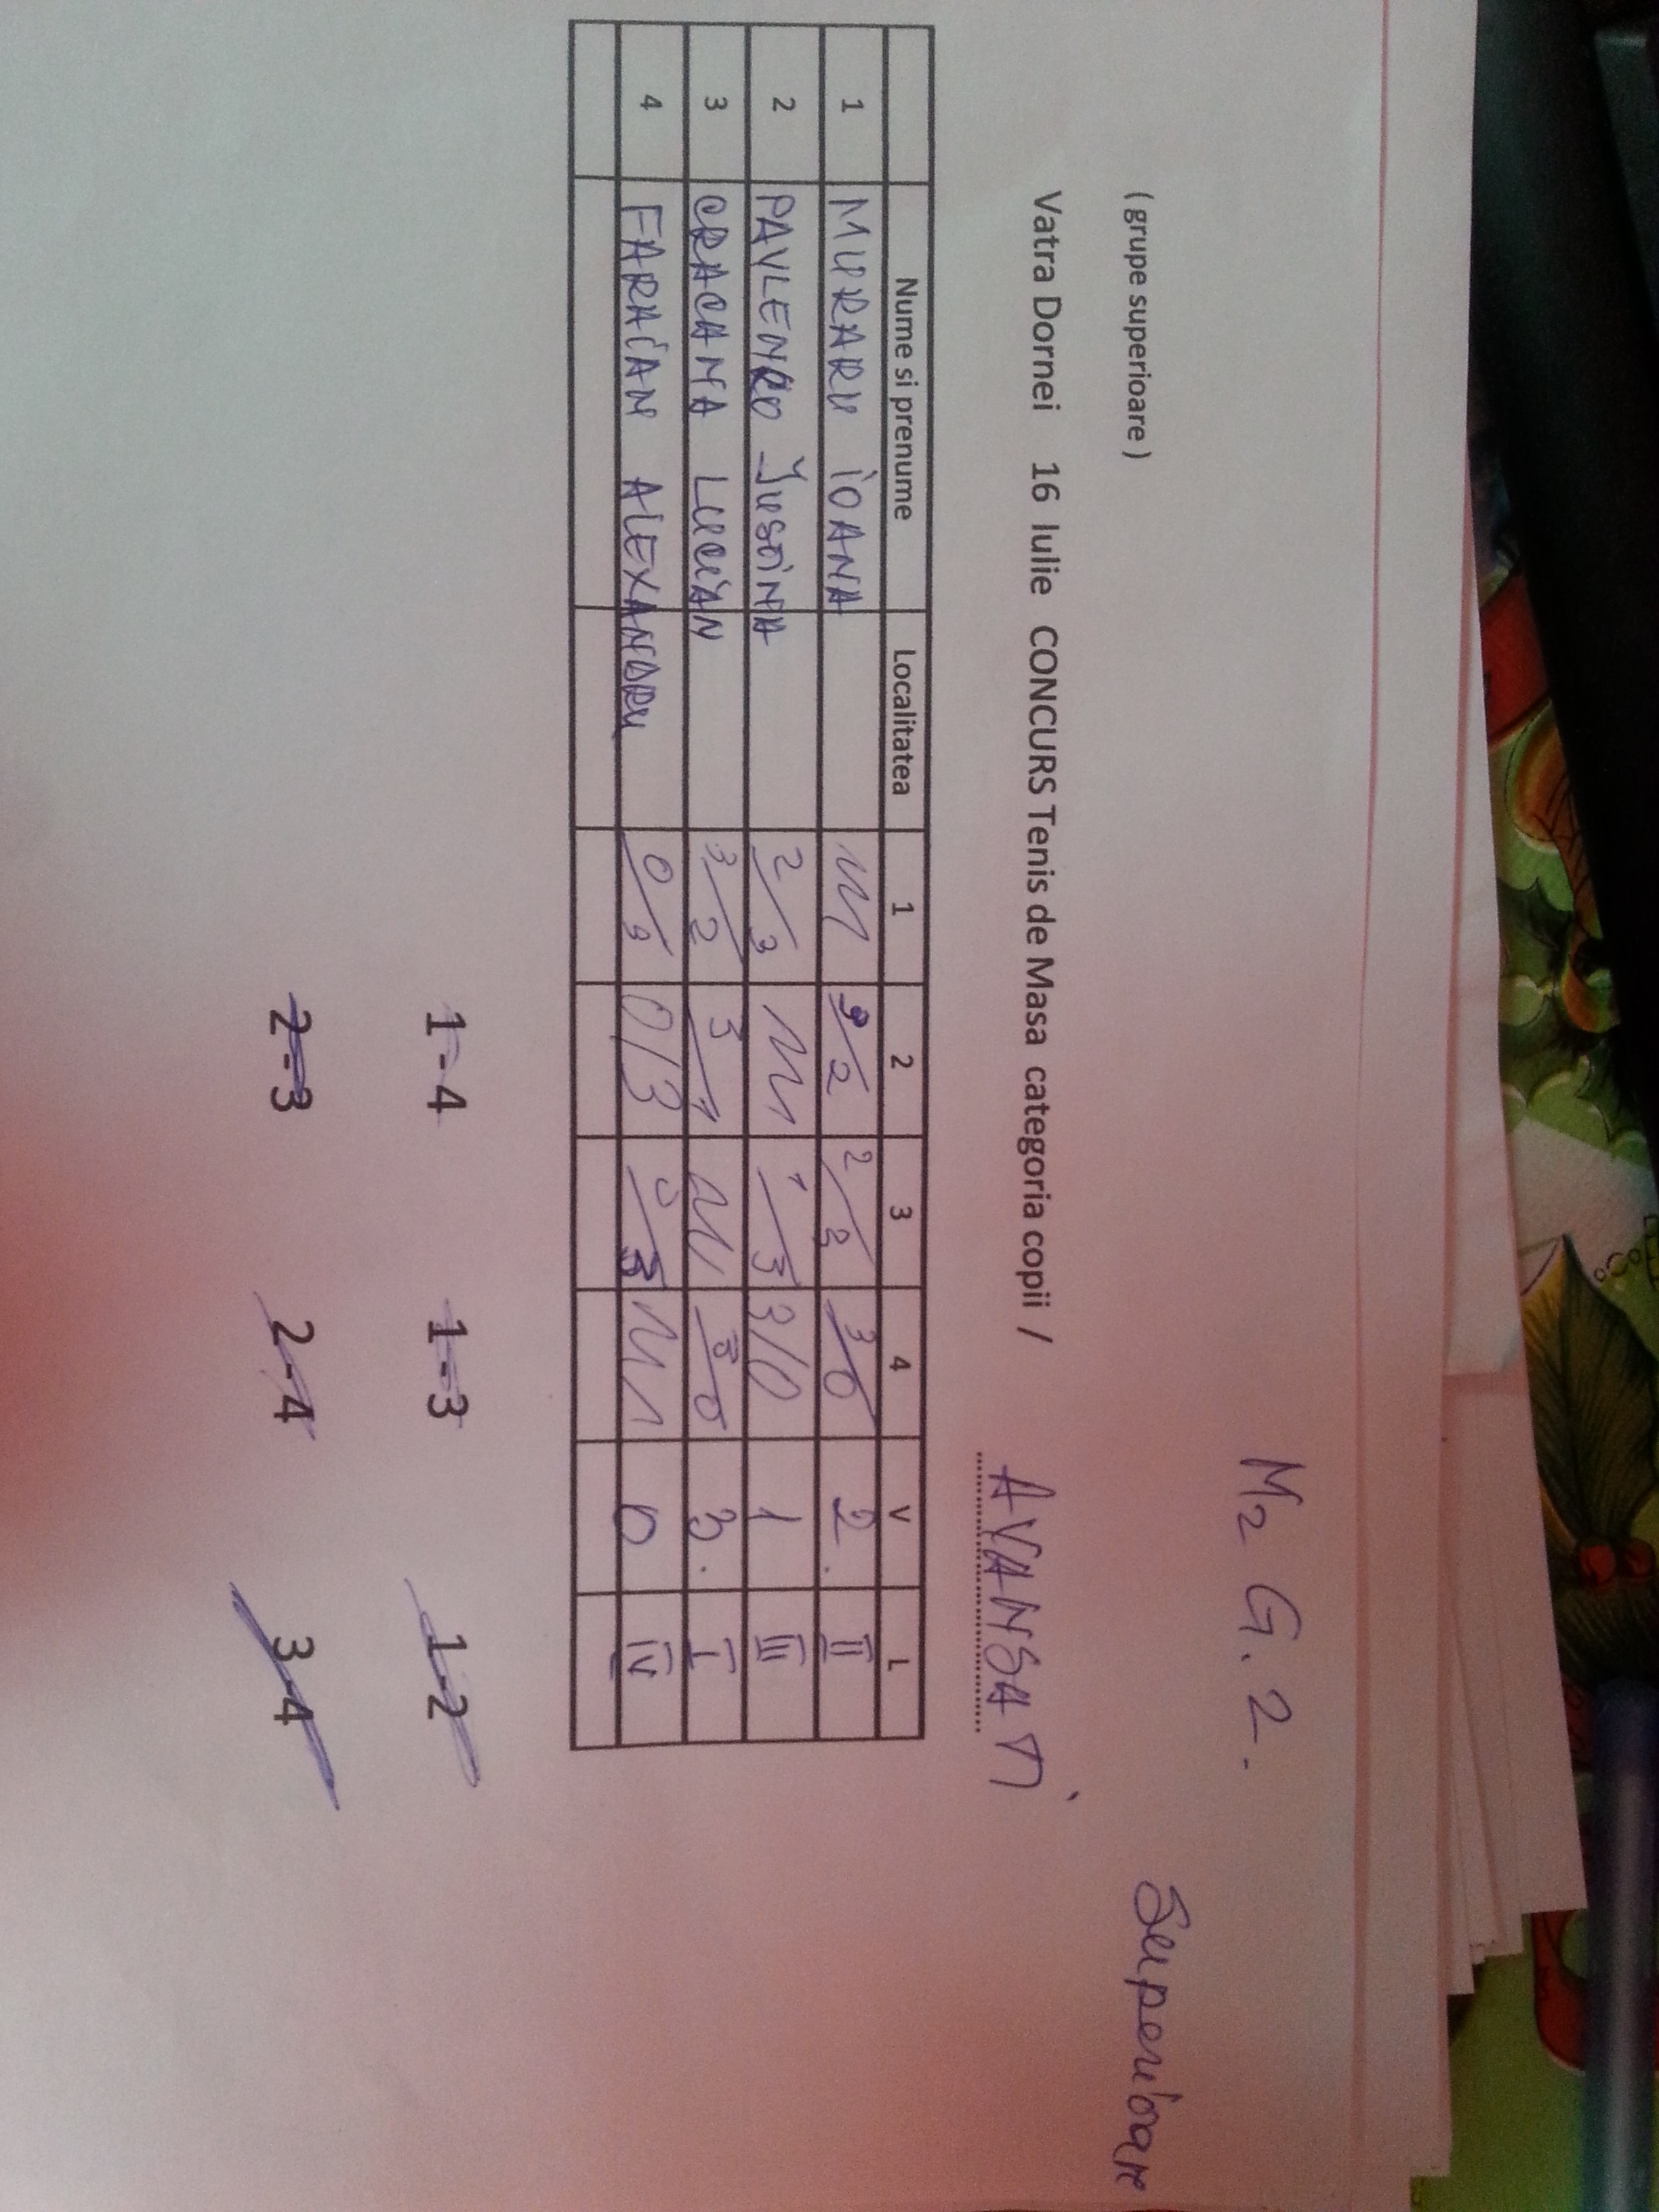 M2 G.2.
( grupe superioare ) Superioare
Vatra Dornei 16 Iulie CONCURS Tenis de Masa categoria copii / AVANSATI
Nume si prenume Localitatea 1 2 3 4 V L
1 MURARU IOANA 3/2 2/3 3/0 2. II
2 PAVLENCO Justina 2/3 1/3 3/0 1 III
3 CRACANA LUCIAN 3/2 3/1 3/0 3. I
4 FARACAN ALEXANDRU 0/3 0/3 0/3 0 IV
1-4 1-3 1-2
2-3 2-4 3-4